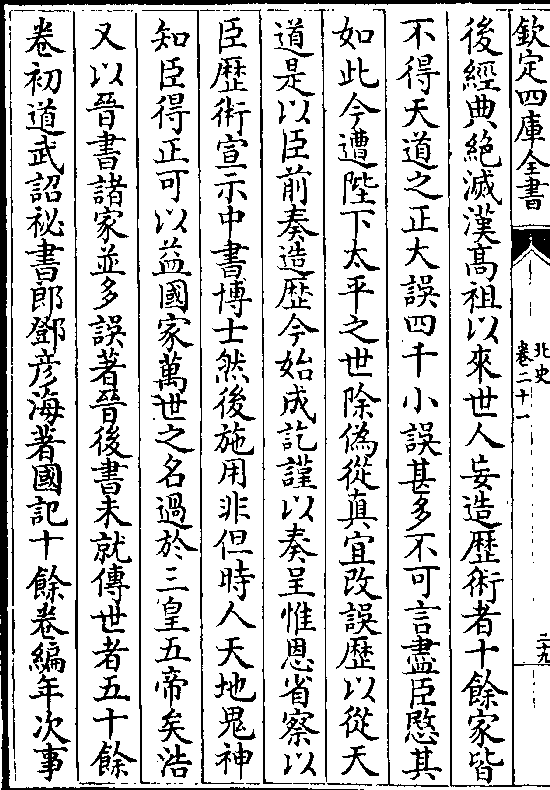 欽定四庫全書
北史
卷二十一
二十九
後經典絶滅漢髙祖以來世人妄造歴術者十餘家皆
不得天道之正大誤四千小誤甚多不可言盡臣愍其
如此今遭陛下太平之世除偽從真宜改誤歴以從天
道是以臣前奏造歴今始成訖謹以奏呈惟恩省察以
臣歴術宣示中書博士然後施用非但時人天地鬼神
知臣得正可以益國家萬世之名過於三皇五帝矣浩
又以晉書諸家並多誤著晉後書未就傳世者五十餘
卷初道武詔祕書郎鄧彦海著國記十餘卷編年次事